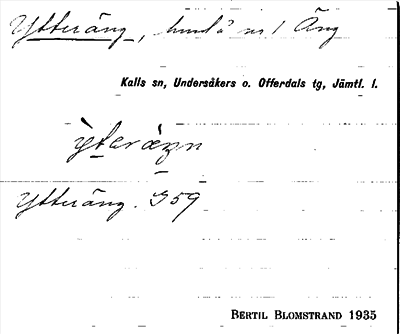 Ytteräng, hmd å nr 1 Äng
Kalls sn, Undersåkers o. Offerdals tg, Jämtl. l.
Ytteräng. J 59
BERTIL BLOMSTRAND 1935